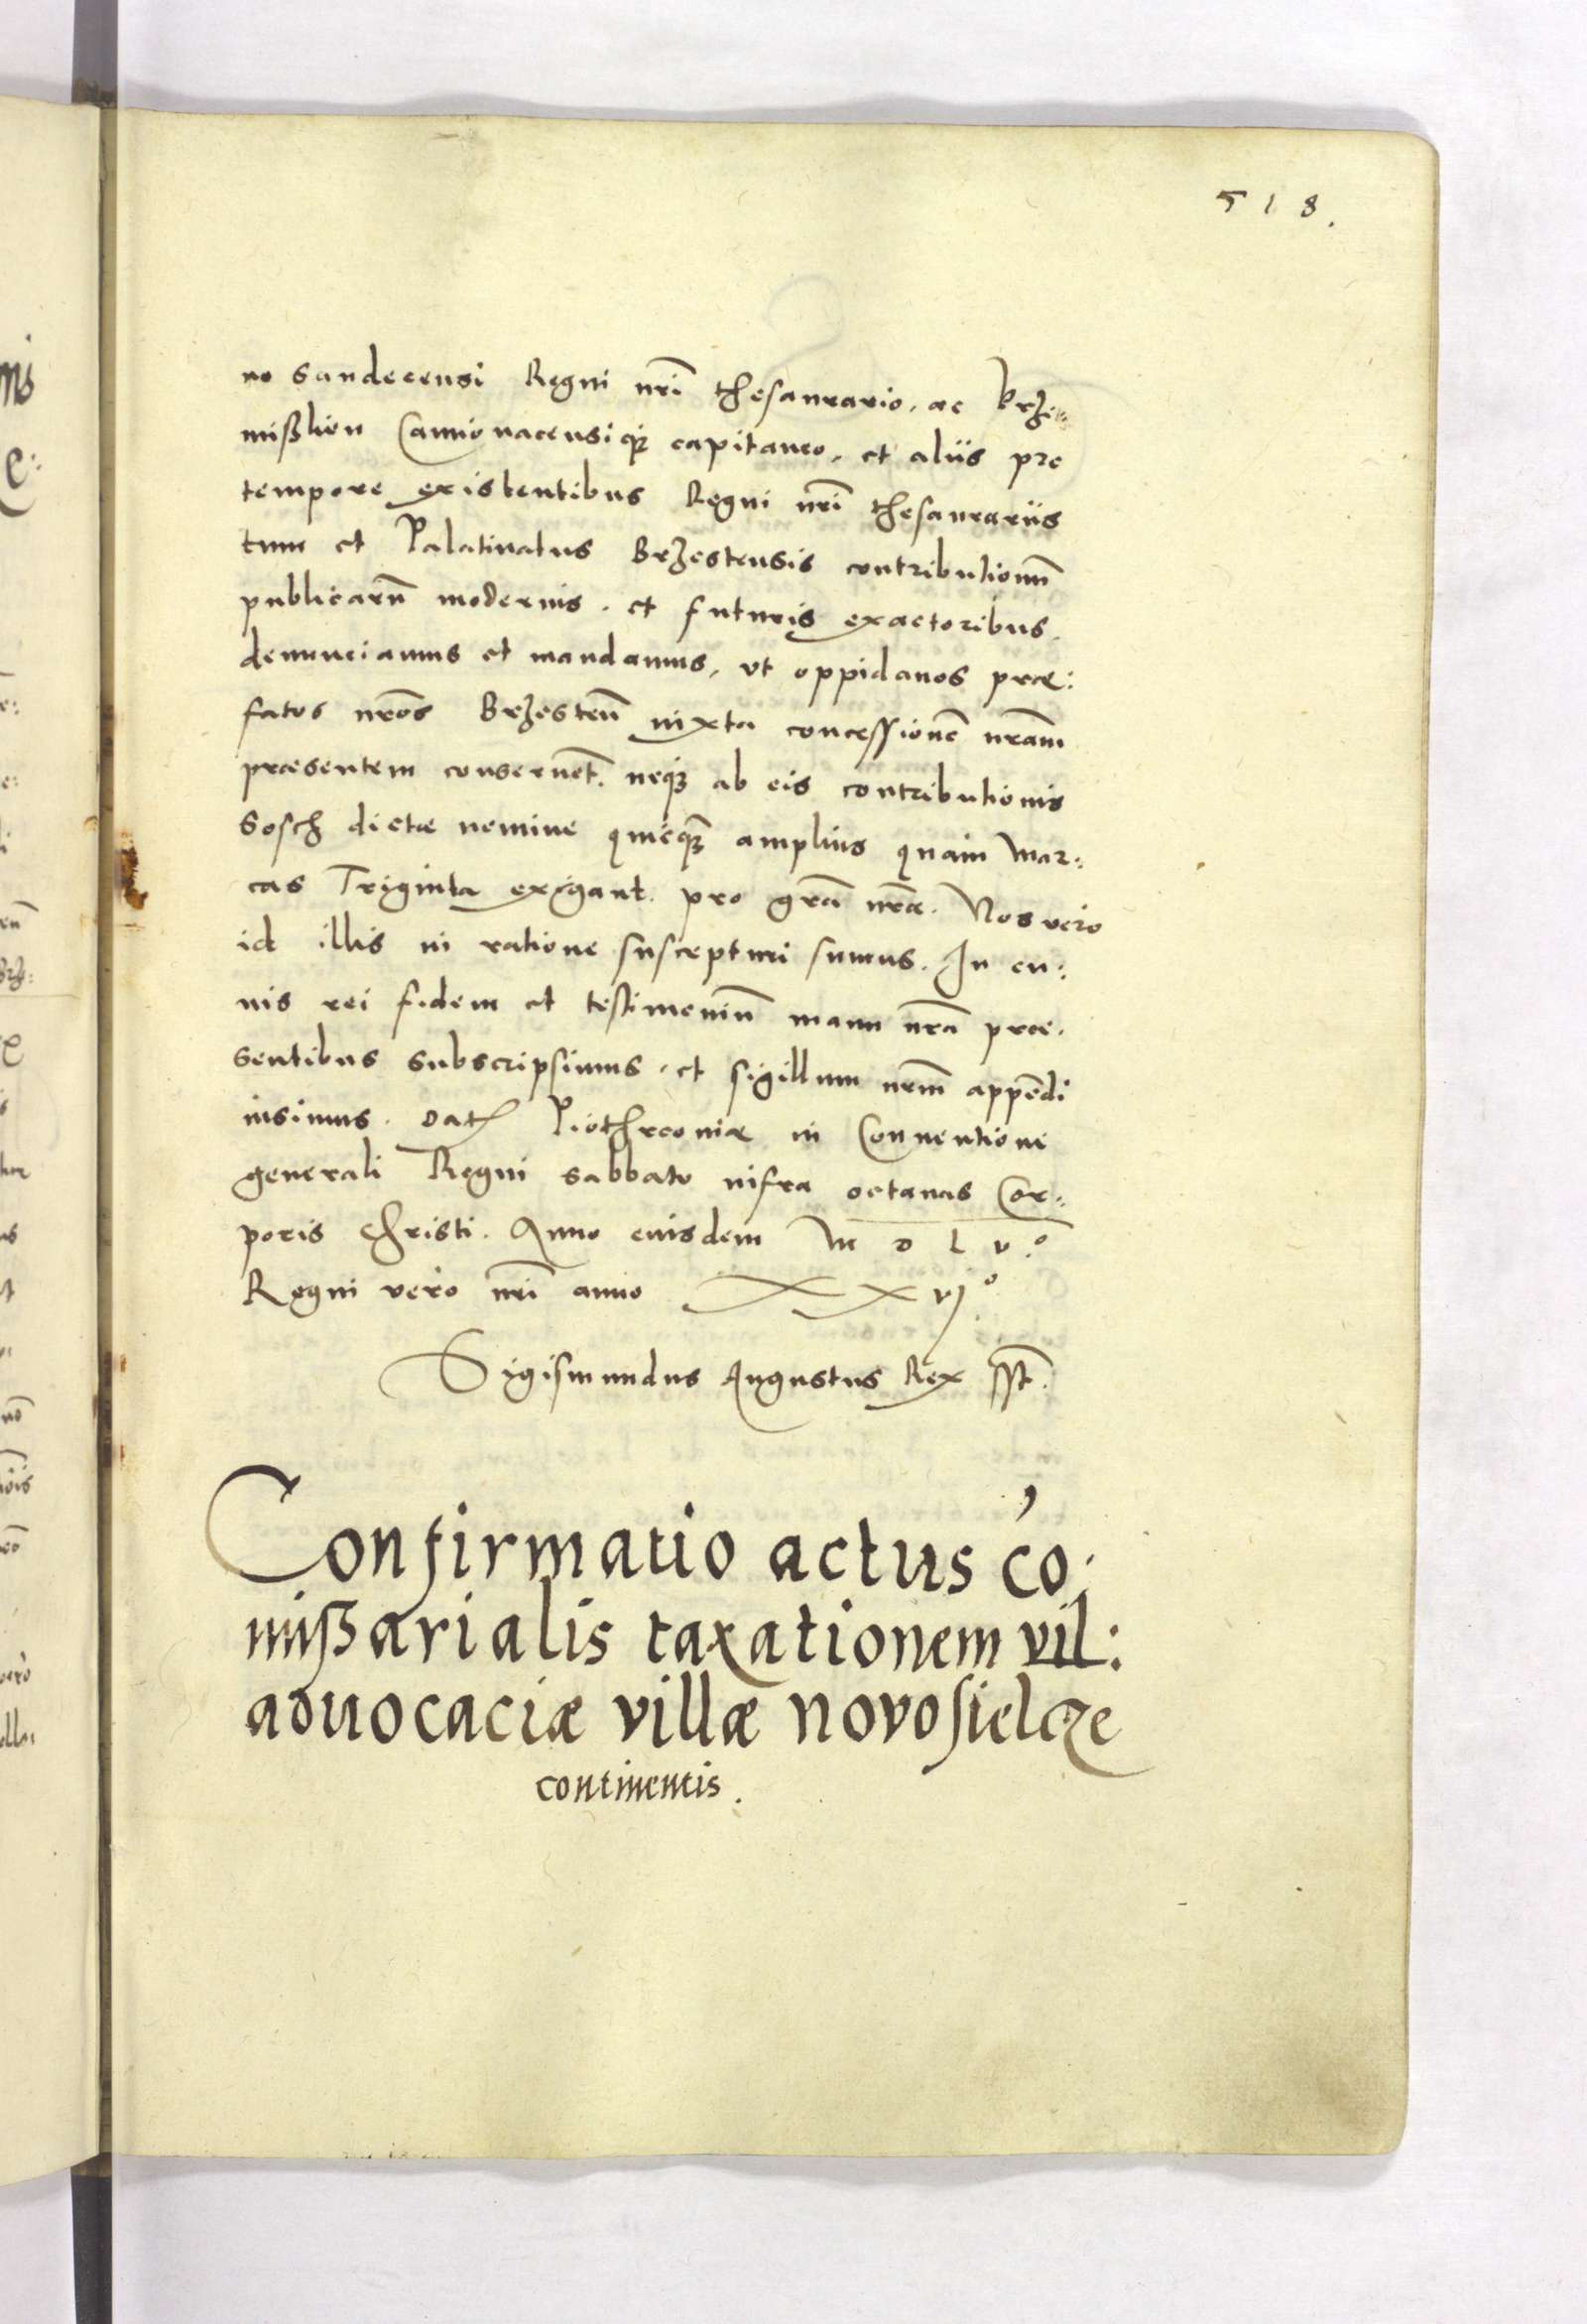 518.
no Sandecensi Regni nrī thesaurario, ac Krze:
mißlien Camionacensiqꝫ capitaneo, et aliis pro
tempore existentibus Regni nrī thesaurariis
tum et Palatinatus Brzestensis contributionū
publicarū modernis, et futuris exactoribus,
denunciamus et mandamus, ut oppidanos præ:
fatos nrōs Brzestēn iuxta concessionē nrām
præsentem conseruēt, neqꝫ ab eis contributionis
Sosch dictæ nomine quicqꝫ amplius quam mar:
cas Triginta exigant. pro grā nrā. Nos vero
id illis in ratione suscepturi sumus. In cu:
ius rei fidem et testimoniū manu nrā præ:
sentibus subscripsimus, et sigillum nrm̄ appēdi
iussimus. Dat Piothrcouiæ in Conuentione
generali Regni sabbato infra octauas Cor:
poris Christi. Anno eiusdem M D L V.º
Regni vero nrī anno XXVIº
Sigismundus Augustus Rex sst.
Confirmatio actus Cō:
mißarialis taxationem vil:
aduocaciæ villæ novosielcze
continentis.